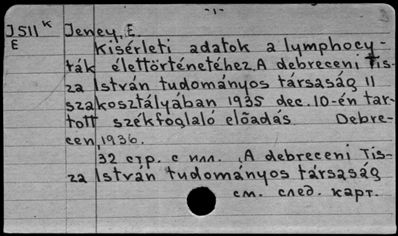 -1-
J511 K Jeney, E.
E
Kisérleti adatok a lymphocy-
ták élettörténetéhez. A debreceni Tis-
za István tudományos társaság II
szakosztályában 1935 dec. 10-én tar-
tott székfoglaló előadás Debre-
cen, 1936.
32 стр. с илл. (A debreceni Tis-
za István tudományos társaság
см. след. карт.